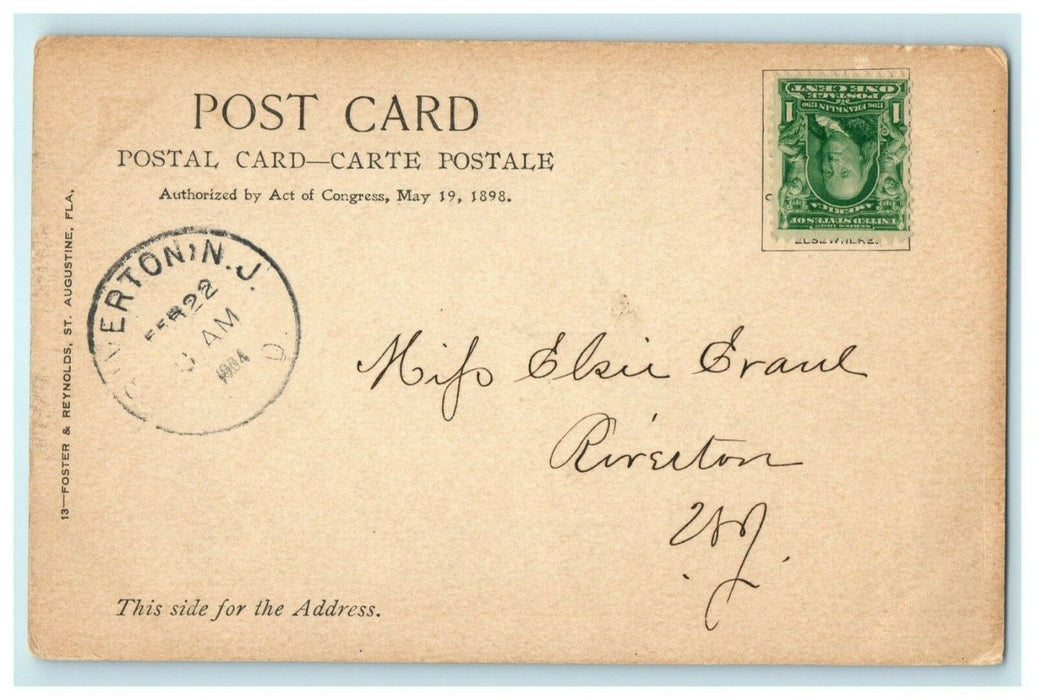 POST CARD
POSTAL CARD—CARTE POSTALE
Authorized by Act of Congress, May 19, 1898.
SERIES 1902
UNITED STATES OF
AMERICA
1706 FRANKLIN 1790
1 1
POSTAGE
ONE CENT
ELSEWHERE.
RIVERTON, N.J.
FEB 22
AM
1904
D.
Miss Elsie
Riverton
N.J.
13—FOSTER & REYNOLDS, ST. AUGUSTINE, FLA.
This side for the Address.